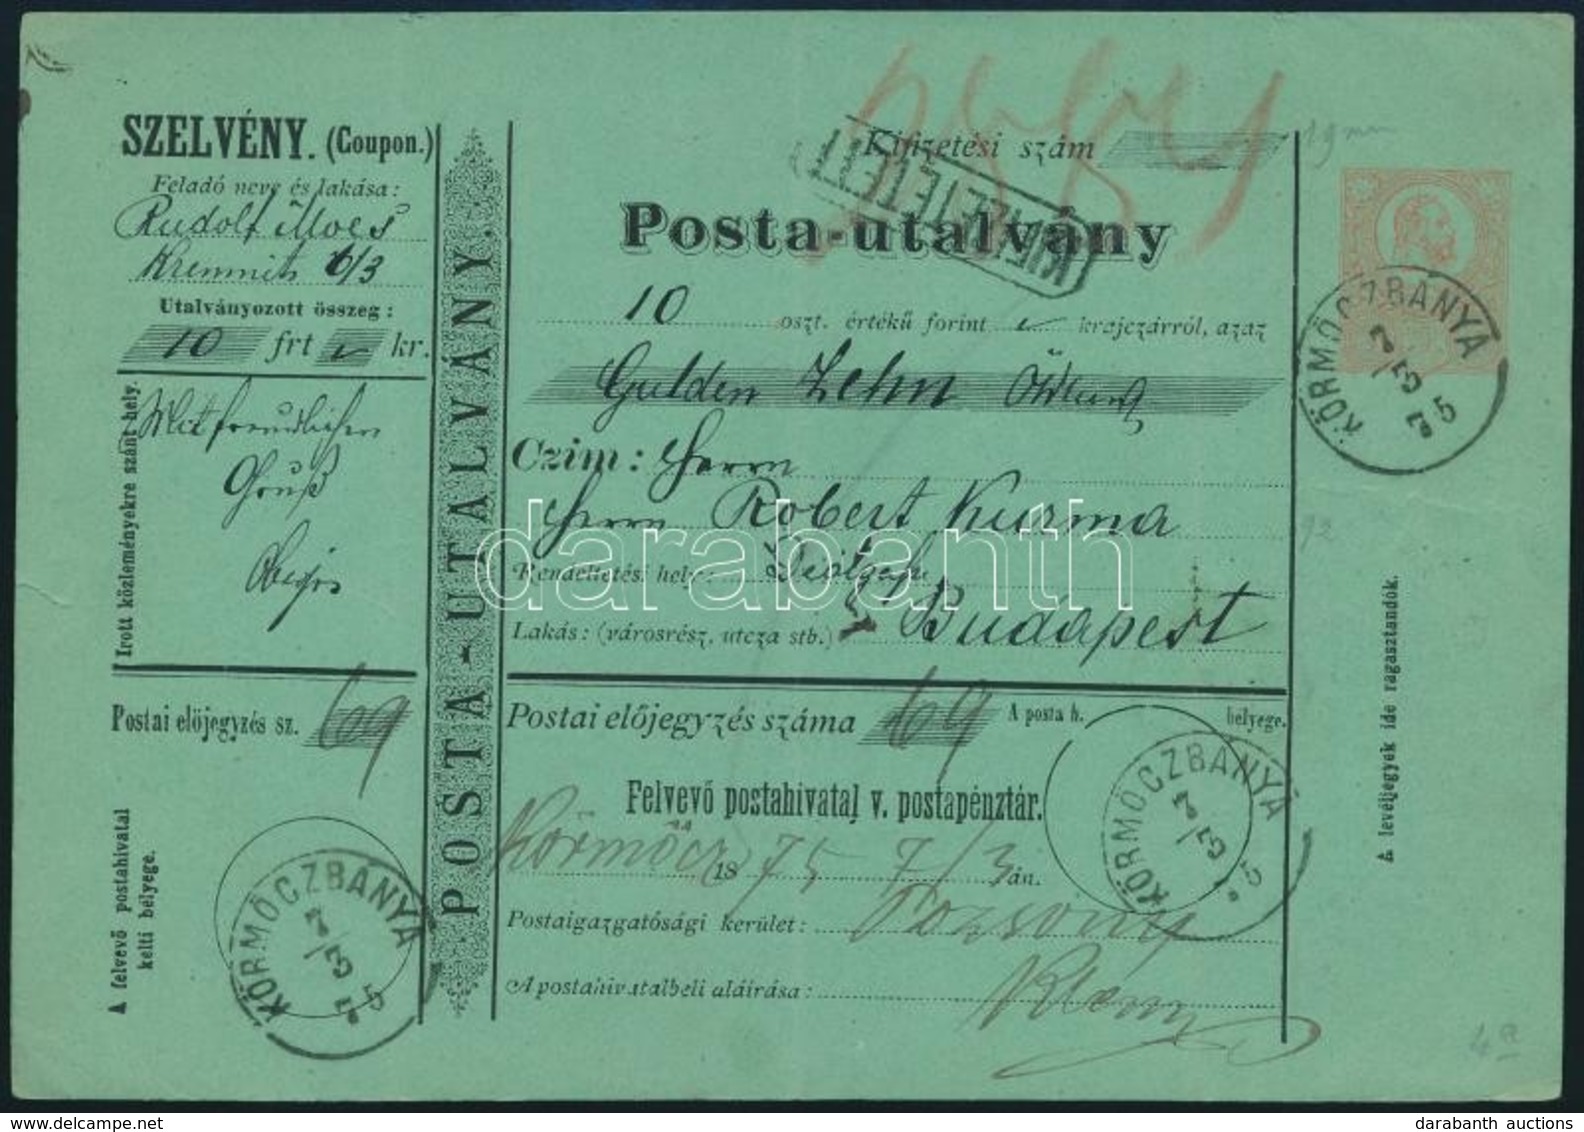 SZELVÉNY. (Coupon.)
Feladó neve és lakása:
Rudolf Moes
Kremnitz 6/3
Utalványozott összeg:
10 frt kr.
Irott közleményekre szánt hely.
Mit freundlichen
Gruß
Obiger
Postai előjegyzés sz. 69
A felvevő postahivatal
kelti bélyege.
KÖRMÖCZBÁNYA
7/3
75
POSTA-UTALVÁNY.
Kifizetési szám
KIFIZETTETETT
Posta-utalvány
10 oszt. értékű forint krajczárról, azaz
Gulden Zehn Öst. Währung
Czim: Herrn
Herrn Robert Kuzma
Rendeltetési hely:
Lakás: (városrész, utcza stb.) Budapest
Postai előjegyzés száma 69 A posta h. bélyege.
Felvevő postahivatal v. postapénztár.
Körmöcz 1875 7/3 án.
Postaigazgatósági kerület: Pozsony
A postahivatalbeli aláirása: Klem
KÖRMÖCZBÁNYA
7/3
75
19 mm
KÖRMÖCZBÁNYA
7/3
75
92
A levéljegyek ide ragasztandók.
4a
darabanth
darabanth auctions